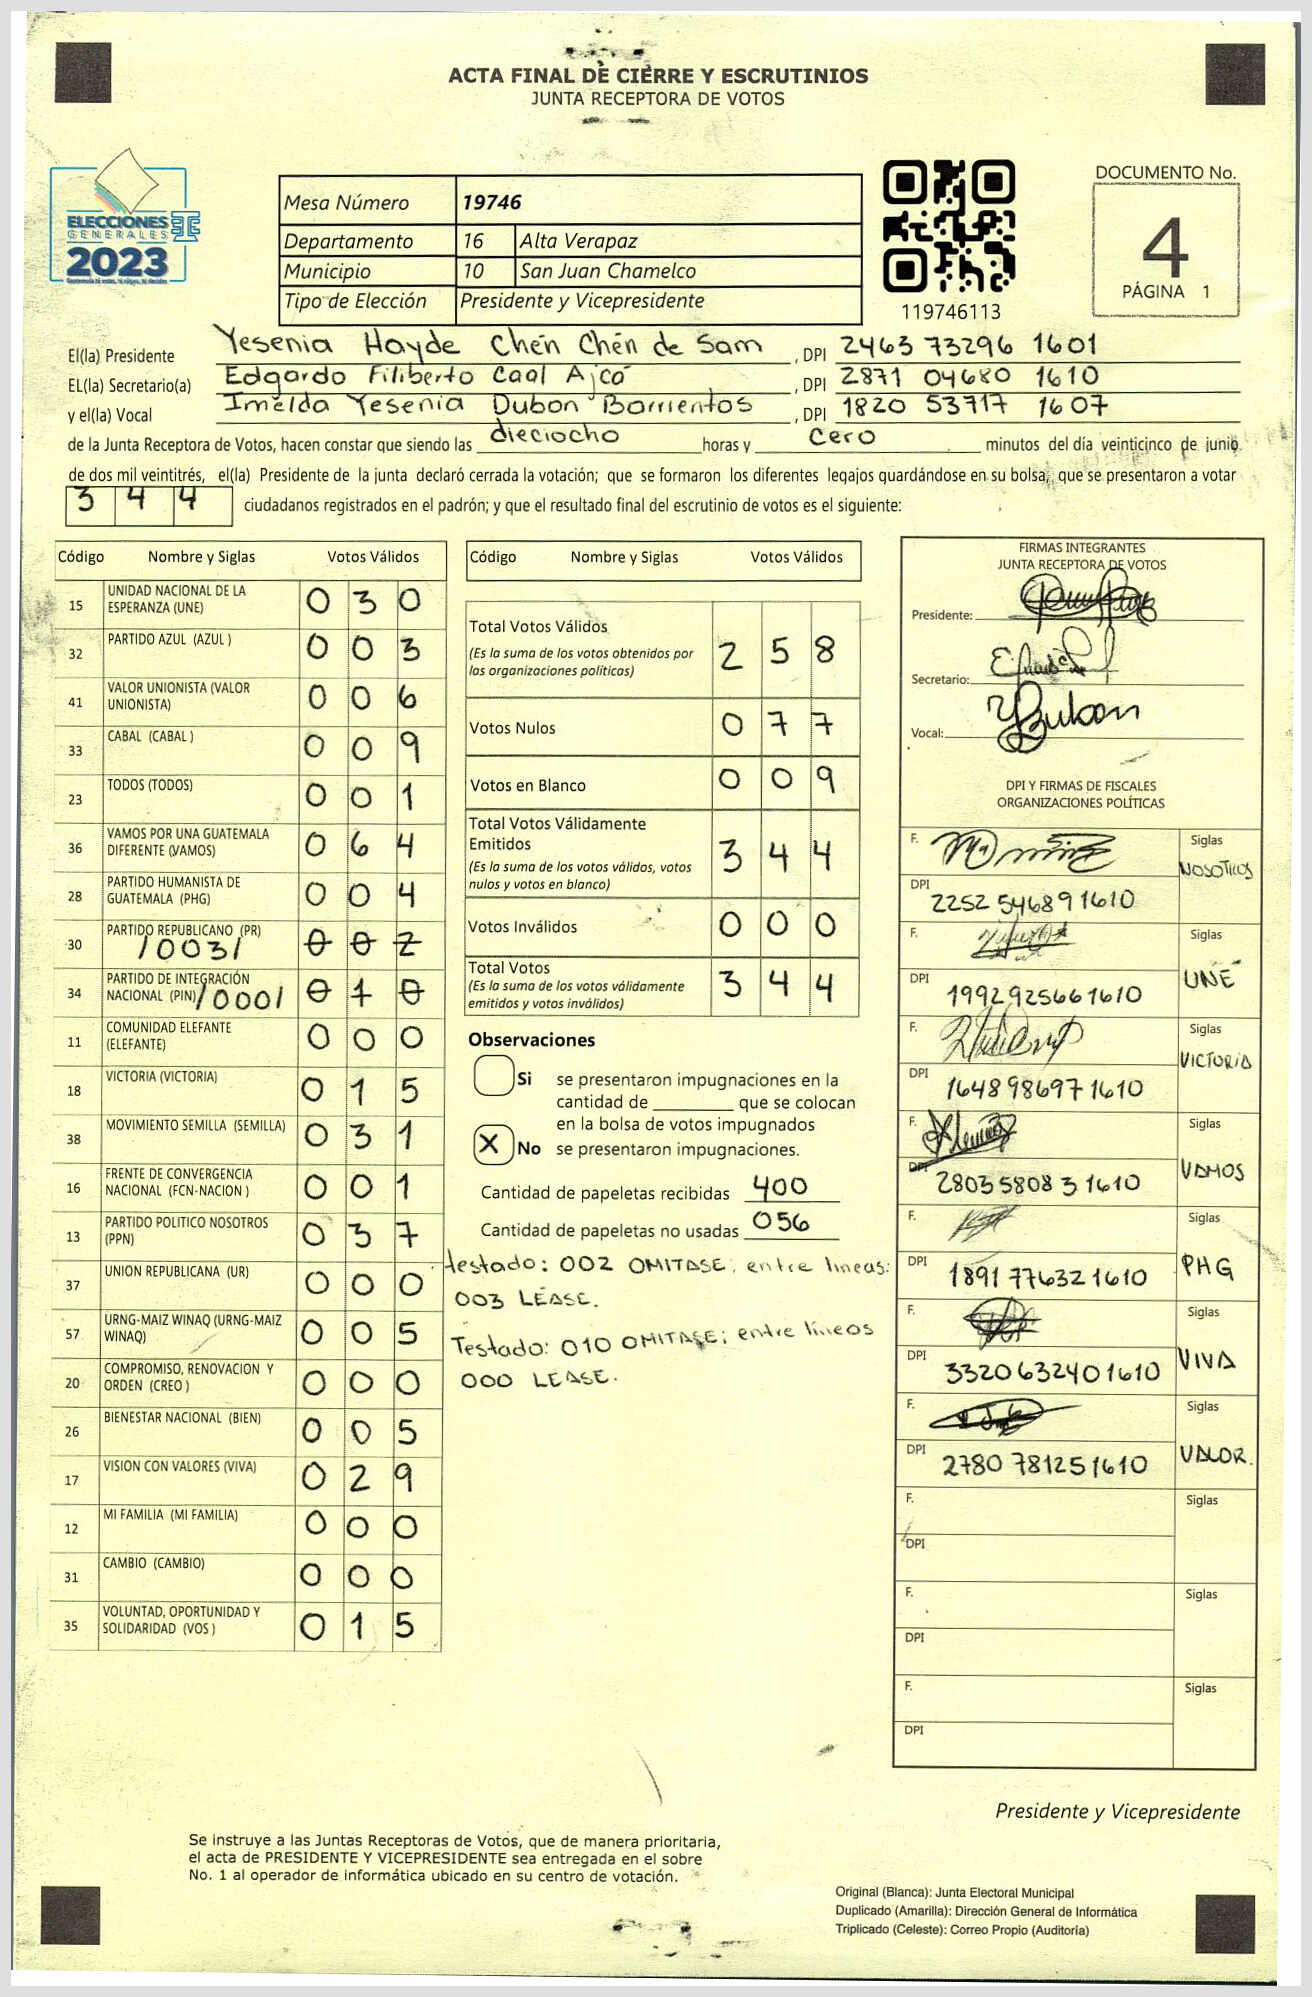 ACTA FINAL DE CIERRE Y ESCRUTINIOS
JUNTA RECEPTORA DE VOTOS
ELECCIONES
GENERALES
2023
Mesa Número 19746
Departamento 16 Alta Verapaz
Municipio 10 San Juan Chamelco
Tipo de Elección Presidente y Vicepresidente
119746113
DOCUMENTO No.
4
PÁGINA 1
El(la) Presidente Yesenia Hayde Chén Chén de Sam, DPI 2463 73296 1601
EL(la) Secretario(a) Edgardo Filiberto Caal Ajcó, DPI 2871 04680 1610
y el(la) Vocal Imelda Yesenia Dubon Barrientos, DPI 1820 53717 1607
de la Junta Receptora de Votos, hacen constar que siendo las dieciocho horas y cero minutos del día veinticinco de junio
de dos mil veintitrés, el(la) Presidente de la junta declaró cerrada la votación; que se formaron los diferentes legajos quardándose en su bolsa, que se presentaron a votar
3 4 4 ciudadanos registrados en el padrón; y que el resultado final del escrutinio de votos es el siguiente:
Código Nombre y Siglas Votos Válidos
15 UNIDAD NACIONAL DE LA ESPERANZA (UNE) 0 3 0
32 PARTIDO AZUL (AZUL ) 0 0 3
41 VALOR UNIONISTA (VALOR UNIONISTA) 0 0 6
33 CABAL (CABAL ) 0 0 9
23 TODOS (TODOS) 0 0 1
36 VAMOS POR UNA GUATEMALA DIFERENTE (VAMOS) 0 6 4
28 PARTIDO HUMANISTA DE GUATEMALA (PHG) 0 0 4
30 PARTIDO REPUBLICANO (PR) /003/ 0 0 2
34 PARTIDO DE INTEGRACIÓN NACIONAL (PIN) /000/ 0 1 0
11 COMUNIDAD ELEFANTE (ELEFANTE) 0 0 0
18 VICTORIA (VICTORIA) 0 1 5
38 MOVIMIENTO SEMILLA (SEMILLA) 0 3 1
16 FRENTE DE CONVERGENCIA NACIONAL (FCN-NACION ) 0 0 1
13 PARTIDO POLITICO NOSOTROS (PPN) 0 3 7
37 UNION REPUBLICANA (UR) 0 0 0
57 URNG-MAIZ WINAQ (URNG-MAIZ WINAQ) 0 0 5
20 COMPROMISO, RENOVACION Y ORDEN (CREO ) 0 0 0
26 BIENESTAR NACIONAL (BIEN) 0 0 5
17 VISION CON VALORES (VIVA) 0 2 9
12 MI FAMILIA (MI FAMILIA) 0 0 0
31 CAMBIO (CAMBIO) 0 0 0
35 VOLUNTAD, OPORTUNIDAD Y SOLIDARIDAD (VOS ) 0 1 5
Código Nombre y Siglas Votos Válidos
Total Votos Válidos 2 5 8
(Es la suma de los votos obtenidos por
las organizaciones políticas)
Votos Nulos 0 7 7
Votos en Blanco 0 0 9
Total Votos Válidamente
Emitidos 3 4 4
(Es la suma de los votos válidos, votos
nulos y votos en blanco)
Votos Inválidos 0 0 0
Total Votos 3 4 4
(Es la suma de los votos válidamente
emitidos y votos inválidos)
Observaciones
Si se presentaron impugnaciones en la
cantidad de ________ que se colocan
en la bolsa de votos impugnados
X No se presentaron impugnaciones.
Cantidad de papeletas recibidas 400
Cantidad de papeletas no usadas 056
testado: 002 OMITASE; entre lineas:
003 LEASE.
Testado: 010 OMITASE; entre lineas
000 LEASE.
FIRMAS INTEGRANTES
JUNTA RECEPTORA DE VOTOS
Presidente:
Secretario:
Vocal:
DPI Y FIRMAS DE FISCALES
ORGANIZACIONES POLÍTICAS
F. Siglas
NOSOTROS
DPI 2252 54689 1610
F. Siglas
UNE
DPI 1992925661610
F. Siglas
VICTORIA
DPI 1648986971610
F. Siglas
VAMOS
DPI 2803580831610
F. Siglas
PHG
DPI 1891776321610
F. Siglas
VIVA
DPI 3320632401610
F. Siglas
VALOR.
DPI 2780781251610
F. Siglas
DPI
F. Siglas
DPI
F. Siglas
DPI
Presidente y Vicepresidente
Se instruye a las Juntas Receptoras de Votos, que de manera prioritaria,
el acta de PRESIDENTE Y VICEPRESIDENTE sea entregada en el sobre
No. 1 al operador de informática ubicado en su centro de votación.
Original (Blanca): Junta Electoral Municipal
Duplicado (Amarilla): Dirección General de Informática
Triplicado (Celeste): Correo Propio (Auditoría)